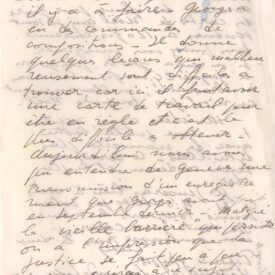 il y a à faire. Georges a
eu des commandes de
compositions - Il donne
quelques leçons qui malheu-
reusement sont difficiles à
trouver car ici il faut avoir
une carte de travail pour
être en règle et c'est le
plus difficile à obtenir
Aujourd'hui nous avons
pu entendre de Genève une
transmission d'un enregistre
ment que Georges avait
en septembre dernier. Malgré
la "vieille barrière" qui persiste
on a l'impression que la
justice se fait peu à peu